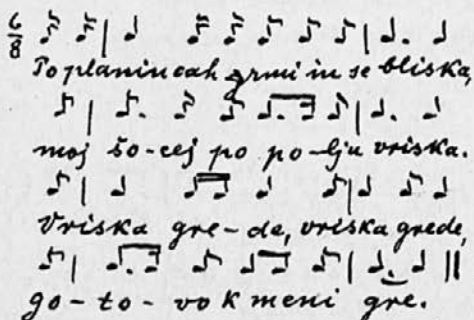 6/8
Po planincah grmi in se bliska,
moj šo-cej po po-lju vriska.
Vriska gre-de, vriska grede,
go-to-vo k meni gre.